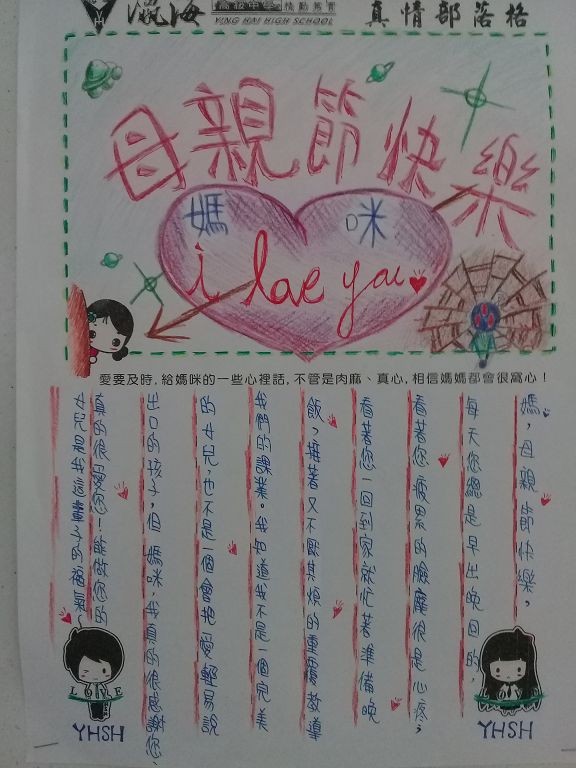 瀛海
高級中學
精勤篤實
YING HAI HIGH SCHOOL
真情部落格
母親節快樂
媽咪
i love you
愛要及時，給媽咪的一些心裡話，不管是肉麻、真心，相信媽媽都會很窩心！
媽，母親節快樂，
每天您總是早出晚回的，
看著您疲累的臉龐很是心疼，
看著您一回到家就忙著準備晚
飯，接著又不厭其煩的重覆教導
我們的課業。我知道我不是一個完美
的女兒，也不是一個會把愛輕易說
出口的孩子，但媽咪，我真的很感謝您、
真的很愛您！能做您的
女兒是我這輩子的福氣～
LOVE
YHSH
LOVE
YHSH